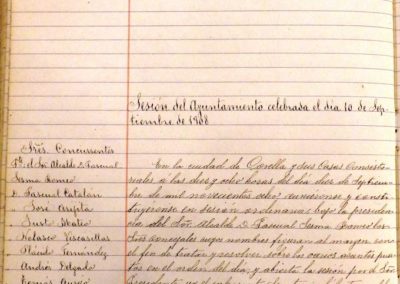 Sesión del Ayuntamiento celebrada el dia 10 de Sep-
tiembre de 1908
Sres. Concurrentes
el Sor Alcalde D. Pascual
Sanna Romeo
D. Pascual Catalán
José Arijita
Justo
Nolasco Viscasillas
Plácido Fernández
Andrés Delgado
Tomas
En la ciudad de Corella y sus Casas Consisto-
riales á las diez y ocho horas del día diez de Septiem-
bre de mil novecientos ocho reunieronse y consti-
tuyeronse en sesión ordinaria bajo la presiden-
cia del Sor. Alcalde D. Pascual Sanna Romeo los
Sres concejales cuyos nombres figuran al margen con
el fin de tratar y resolver sobre los varios asuntos pues-
tos en el orden del día; y abierta la sesión por el Sor
Presidente